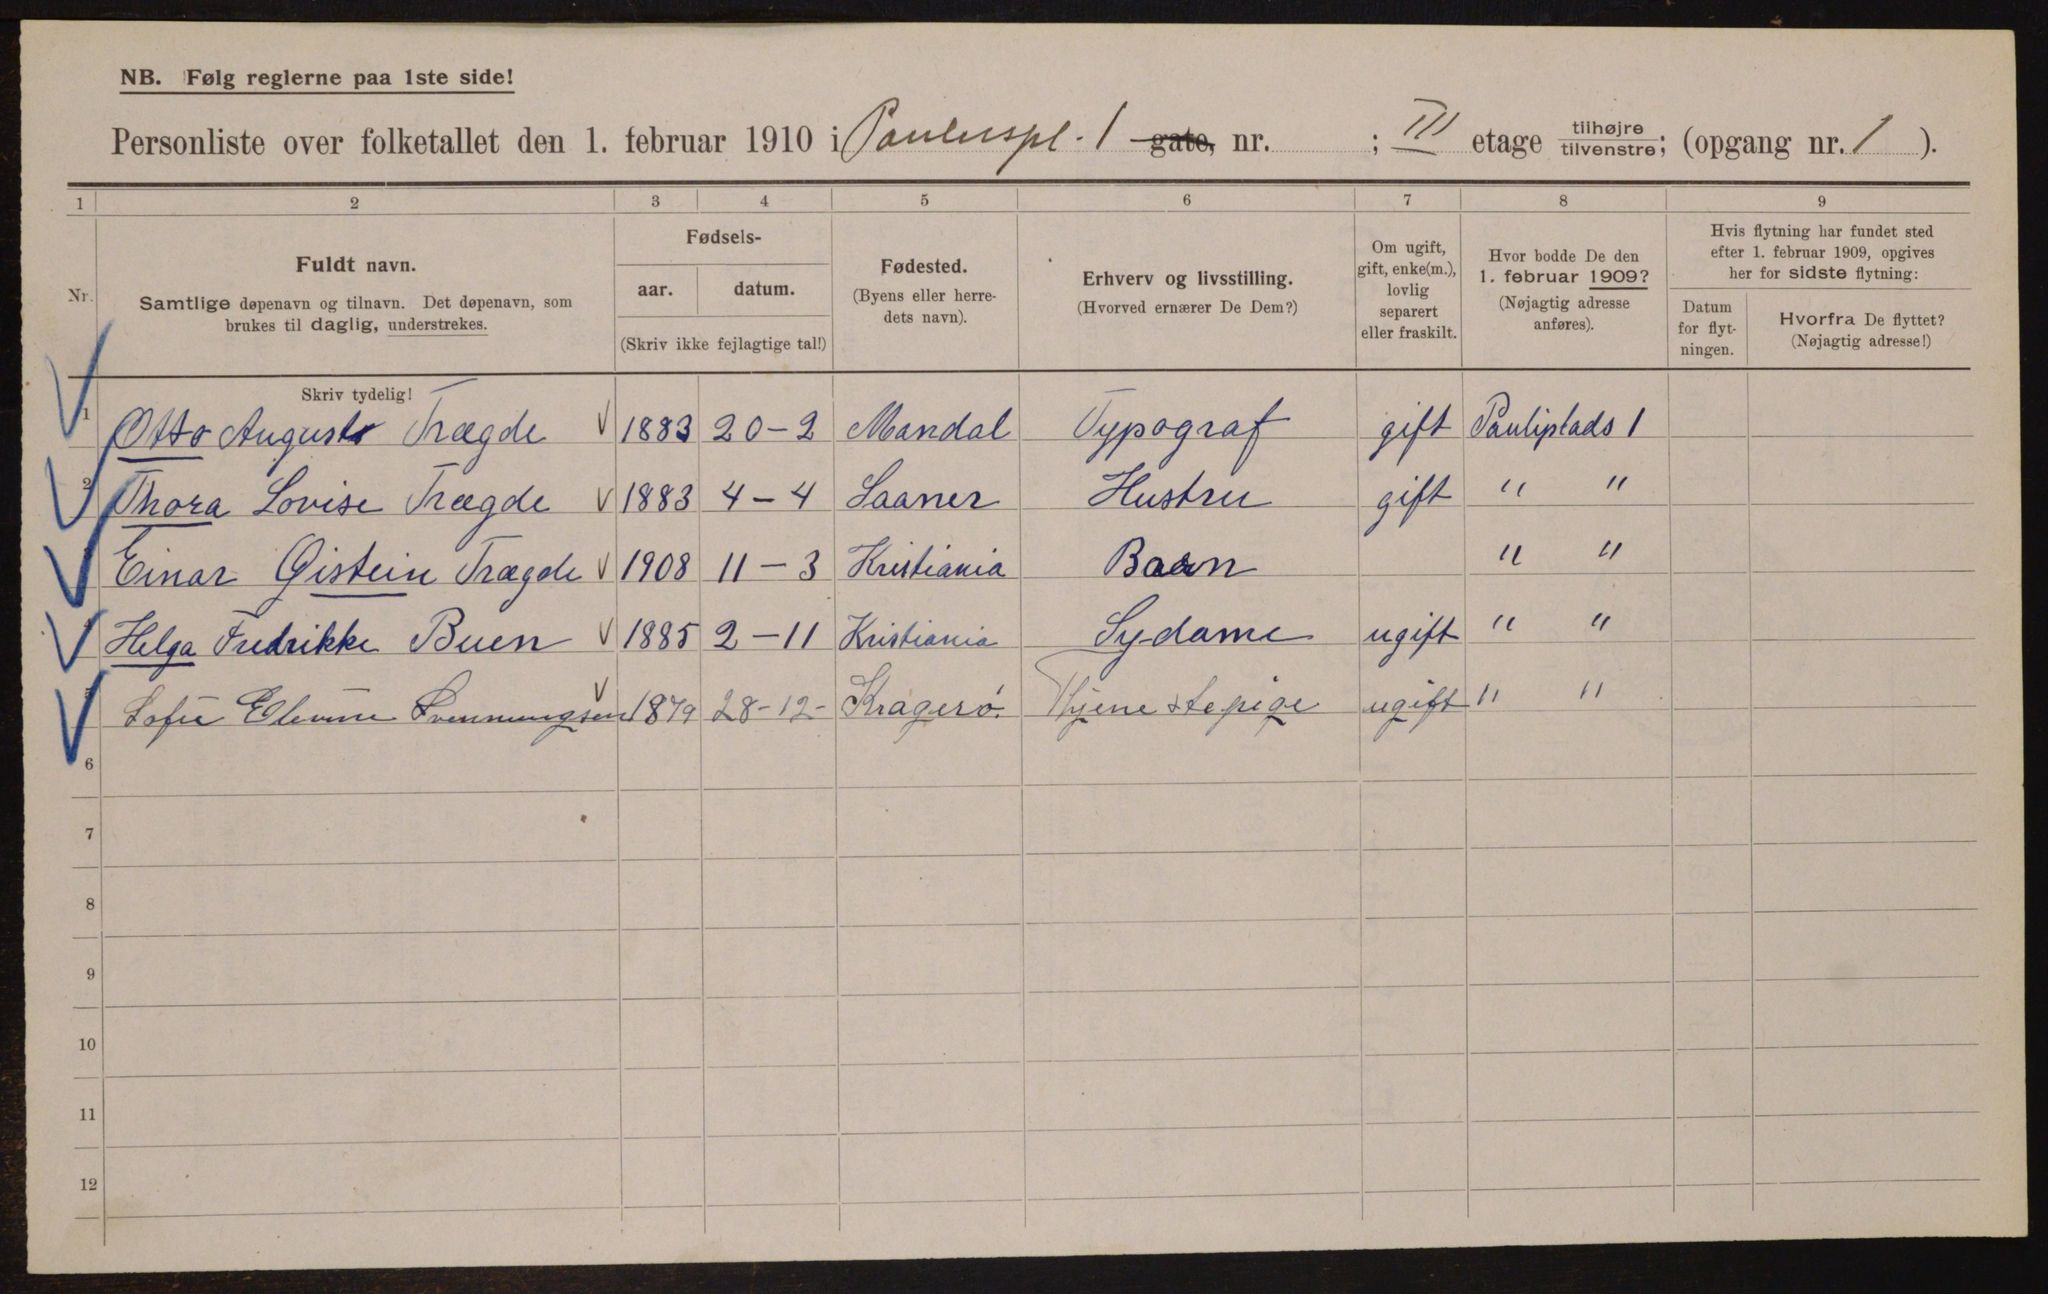 NB. Følg reglerne paa 1ste side!
Personliste over folketallet den 1. februar 1910 i Pauluspl. 1 gate, nr. ; III etage tilhøjre tilvenstre; (opgang nr. 1 ).
1 2 3 4 5 6 7 8 9
Nr.
Fuldt navn.
Samtlige døpenavn og tilnavn. Det døpenavn, som
brukes til daglig, understrekes.
Skriv tydelig!
Fødsels-
aar. datum.
(Skriv ikke fejlagtige tal!)
Fødested.
(Byens eller herre-
dets navn).
Erhverv og livsstilling.
(Hvorved ernærer De Dem?)
Om ugift,
gift, enke(m.),
lovlig
separert
eller fraskilt.
Hvor bodde De den
1. februar 1909?
(Nøjagtig adresse
anføres).
Hvis flytning har fundet sted
efter 1. februar 1909, opgives
her for sidste flytning:
Datum
for flyt-
ningen.
Hvorfra De flyttet?
(Nøjagtig adresse!)
1 Otto August Trægde 1883 20-2 Mandal Typograf gift Pauliplads 1
2 Thora Lovise Trægde 1883 4-4 Saaner Hustru gift " "
Einar Øistein Trægde 1908 11-3 Kristiania Barn " "
Helga Fredrikke Buen 1885 2-11 Kristiania Sydame ugift " "
5 Sofie Elevine Svennungsen 1879 28-12- Kragerø. Tjenestepige ugift " "
6
7
8
9
10
11
12